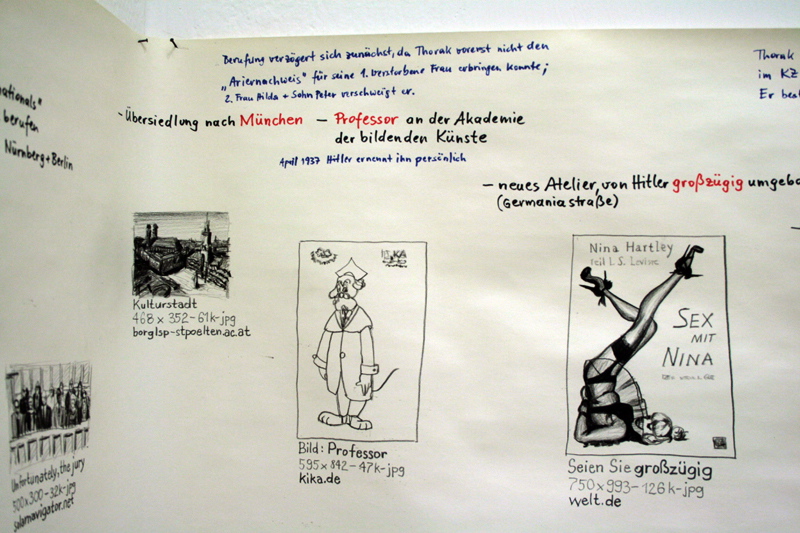 nationals"
berufen
Nürnberg + Berlin
Berufung verzögert sich zunächst, da Thorak vorerst nicht den
„Ariernachweis" für seine 1. verstorbene Frau erbringen konnte;
2. Frau Hilda + Sohn Peter verschweigt er.
Übersiedlung nach München – Professor an der Akademie
der bildenden Künste
April 1937 Hitler ernennt ihn persönlich
– neues Atelier, von Hitler großzügig umgeba
(Germaniastraße)
Thorak
im KZ
Er best
Kulturstadt
468 x 352 – 61k – jpg
borglsp-stpoelten.ac.at
KIKA
Bild: Professor
595 x 842 – 47k – jpg
kika.de
Nina Hartley
SEX
MIT
NINA
Seien Sie großzügig
750 x 993 – 126k – jpg
welt.de
Unfortunately, the jury
500 x 300 – 32k – jpg
solarnavigator.net